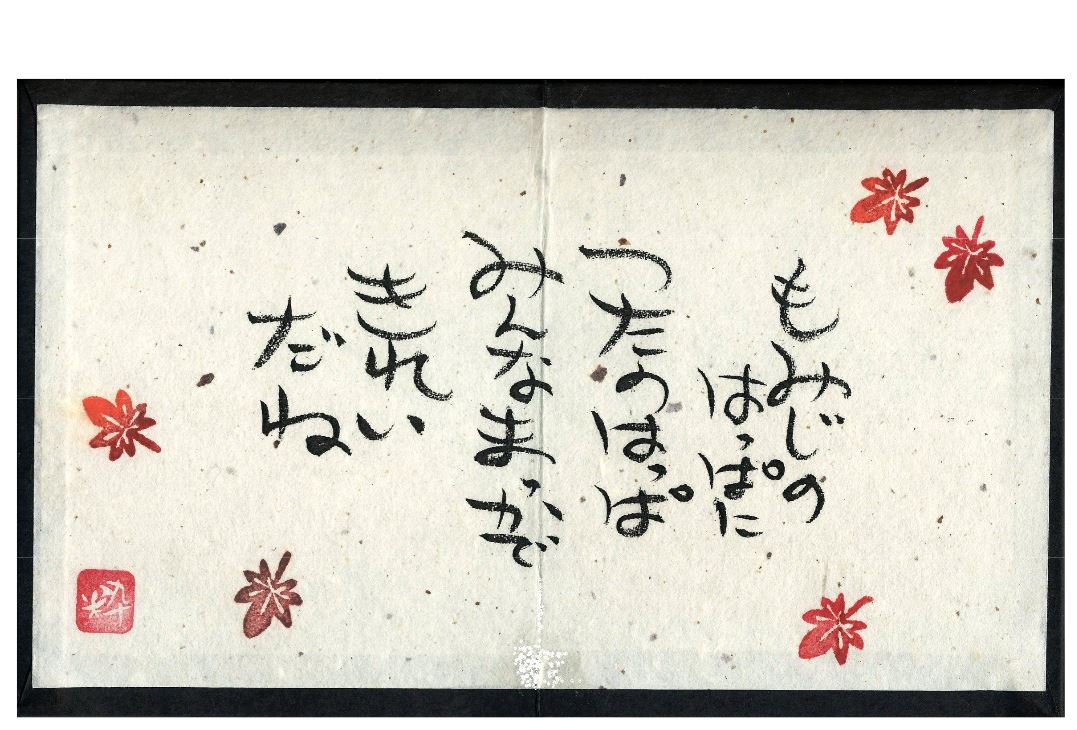 もみじの
はっぱに
つたのはっぱ
みんなまっかで
きれい
だね
粋